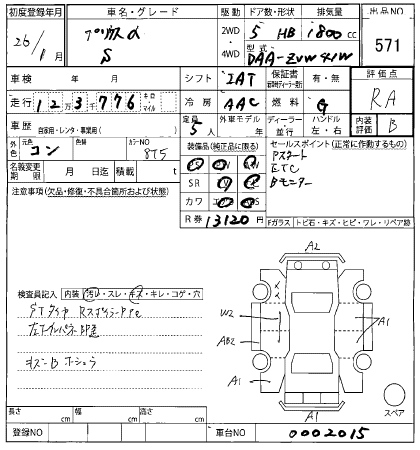 初度登録年月 車名・グレード 駆動 ドア数・形状 排気量 出品NO
26/1月 プリウスα 2WD 5 HB 1800cc 571
S 4WD 型式 DAA-ZVW41W
車検 年 月 シフト IAT 保証書 有・無 評価点
走行 123776 キロ・マイル 冷房 AAC 燃料 G RA
車歴 自家用・レンタ・事業用( ) 定員 5人 外車モデル 年 ディーラー・並行 ハンドル 左・右 内装評価 B
外色 元色 コン 色替 カラーNO 8T5 装備品(純正品に限る) セールスポイント(正常に作動するもの)
名義変更期限 月 日迄 積載 t Pスタート
注意事項(欠品・修復・不具合箇所および状態) SR ETC
カワ Bモニター
R券 13120円 Fガラス トビ石・キズ・ヒビ・ワレ・リペア跡
A2
検査員記入 内装 汚レ・スレ・キズ・キレ・コゲ・穴
W2 A1
AB2
キズ・B ホシュウ
A1
A1 スペア
長さ cm 幅 cm 高さ cm
登録NO 車台NO 0002015